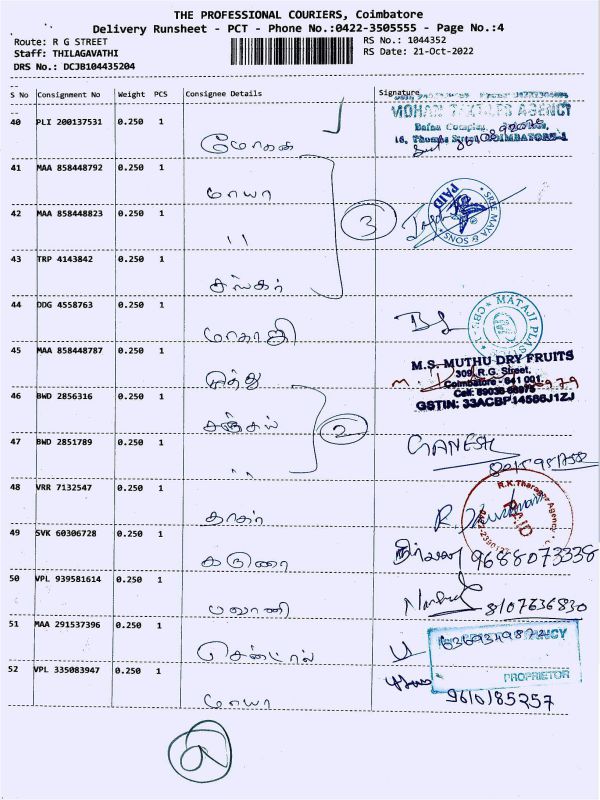 THE PROFESSIONAL COURIERS, Coimbatore
Delivery Runsheet - PCT - Phone No.:0422-3505555 - Page No.:4
Route: R G STREET
RS No.: 1044352
Staff: THILAGAVATHI
RS Date: 21-Oct-2022
DRS No.: DCJB104435204
S No Consignment No Weight PCS Consignee Details Signature
MOHAN TEXTILES AGENCY
40 PLI 200137531 0.250 1
41 MAA 858448792 0.250 1
மாயா
3
SREE MAYA & SONS
PAID
42 MAA 858448823 0.250 1
"
43 TRP 4143842 0.250 1
சங்கர்
44 DDG 4558763 0.250 1
MATAJI PLAS
CBE-1
45 MAA 858448787 0.250 1
முத்து
M.S. MUTHU DRY FRUITS
309, R.G. Street,
Coimbatore - 641 001.
GSTIN: 33ACBF14586J1ZJ
46 BWD 2856316 0.250 1
சஞ்சய்
2
47 BWD 2851789 0.250 1
"
GANESH
48 VRR 7132547 0.250 1
PAID
49 SVK 60306728 0.250 1
கருணா
9688073338
50 VPL 939581614 0.250 1
பவானி
8107636830
51 MAA 291537396 0.250 1
சென்ட்ரல்
PROPRIETOR
52 VPL 335083947 0.250 1
மாயா
9610185257